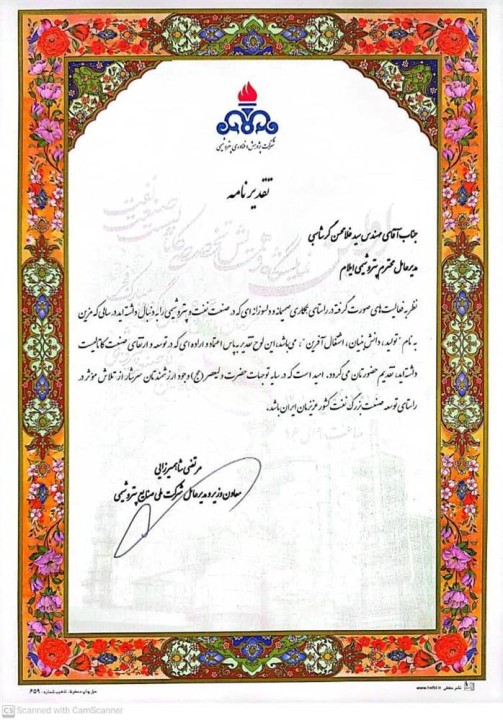 شرکت پژوهش و فناوری پتروشیمی
تقدیرنامه
جناب آقای مهندس سید غلامحسن گرشاسبی
مدیرعامل محترم پتروشیمی ایلام
نظر به فعالیت های صورت گرفته در راستای همکاری صمیمانه و دلسوزانه ای که در صنعت نفت و پتروشیمی را به دنبال داشته اید در سالی که مزین
به نام "تولید، دانش بنیان، اشتغال آفرین"، می‌باشد، این لوح تقدیر به پاس اعتماد و اراده ای که در توسعه و ارتقای صنعت کاتالیست
داشته اید، تقدیم حضورتان می گردد. امید است که در سایه توجهات حضرت ولیعصر (عج) وجود ارزشمندتان سرشار از تلاش مؤثر در
راستای توسعه صنعت بزرگ نفت کشور عزیزمان ایران باشد.
مرتضی شاهمیرزایی
معاون وزیر و مدیرعامل شرکت ملی صنایع پتروشیمی
نشر حفظی www.hefzi.ir
حق چاپ محفوظ، تذهیب شماره: ۶۵۹
CS Scanned with CamScanner